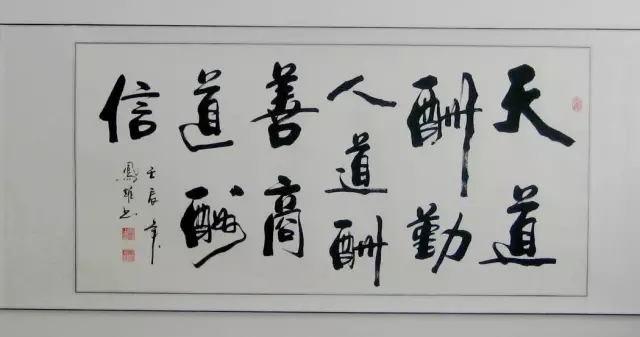 天道
酬勤
人道酬
善商
道酬
信
壬辰年
鳳雄書